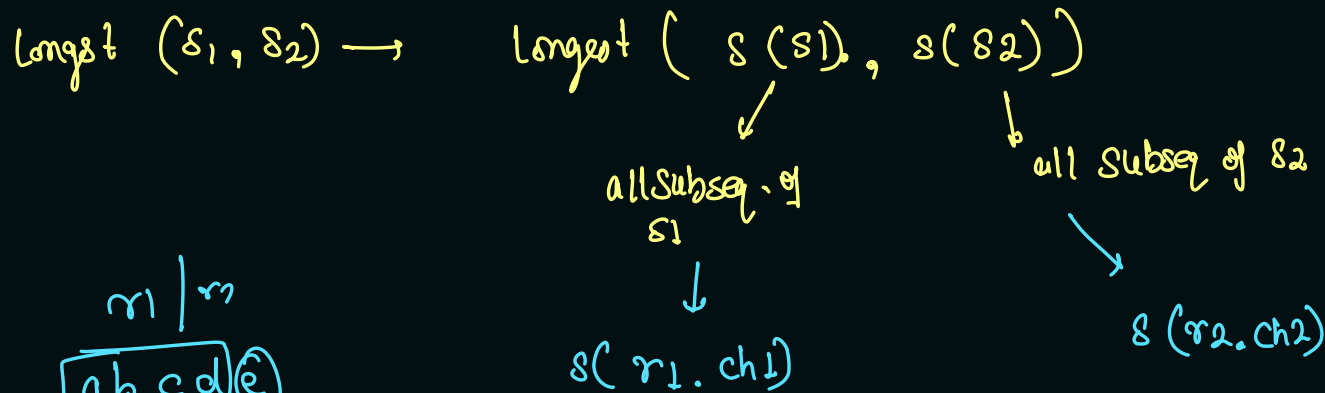 Longst (S1, S2) → Longest ( S (S1), S(S2) )
all Subseq of S2
all Subseq. of
S1
r1 | r2
S (r2. ch2)
S( r1. ch1)
ab c d e